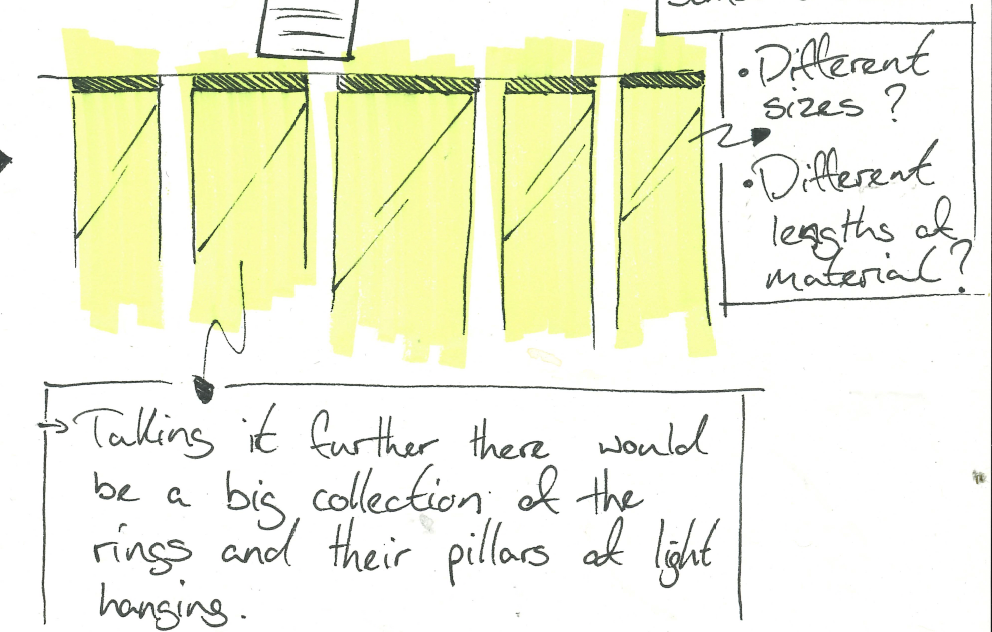 • Different
sizes ?
• Different
lengths of
material?
→ Taking it further there would
be a big collection of the
rings and their pillars of light
hanging.